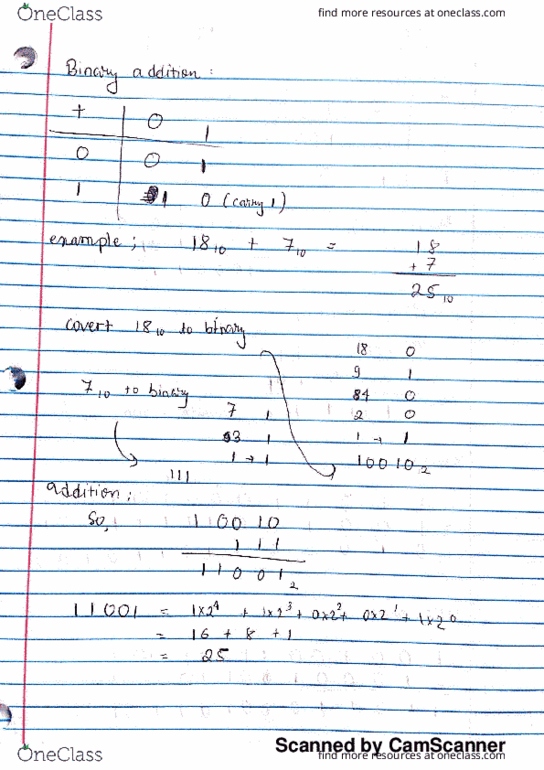 OneClass
find more resources at oneclass.com
Binary addition :
+ 0 1
0 0 1
1 1 0 (carry 1)
example ; 18₁₀ + 7₁₀ = 18
+ 7
25₁₀
covert 18₁₀ to binary
18 0
9 1
84 0
7₁₀ to binary
2 0
7 1
1 → 1
93 1
10010₂
1 → 1
111
addition ;
So, 10010
111
11001₂
11001 = 1x2⁴ + 1x2³ + 0x2² + 0x2¹ + 1x2⁰
= 16 + 8 + 1
= 25
Scanned by CamScanner
OneClass
find more resources at oneclass.com